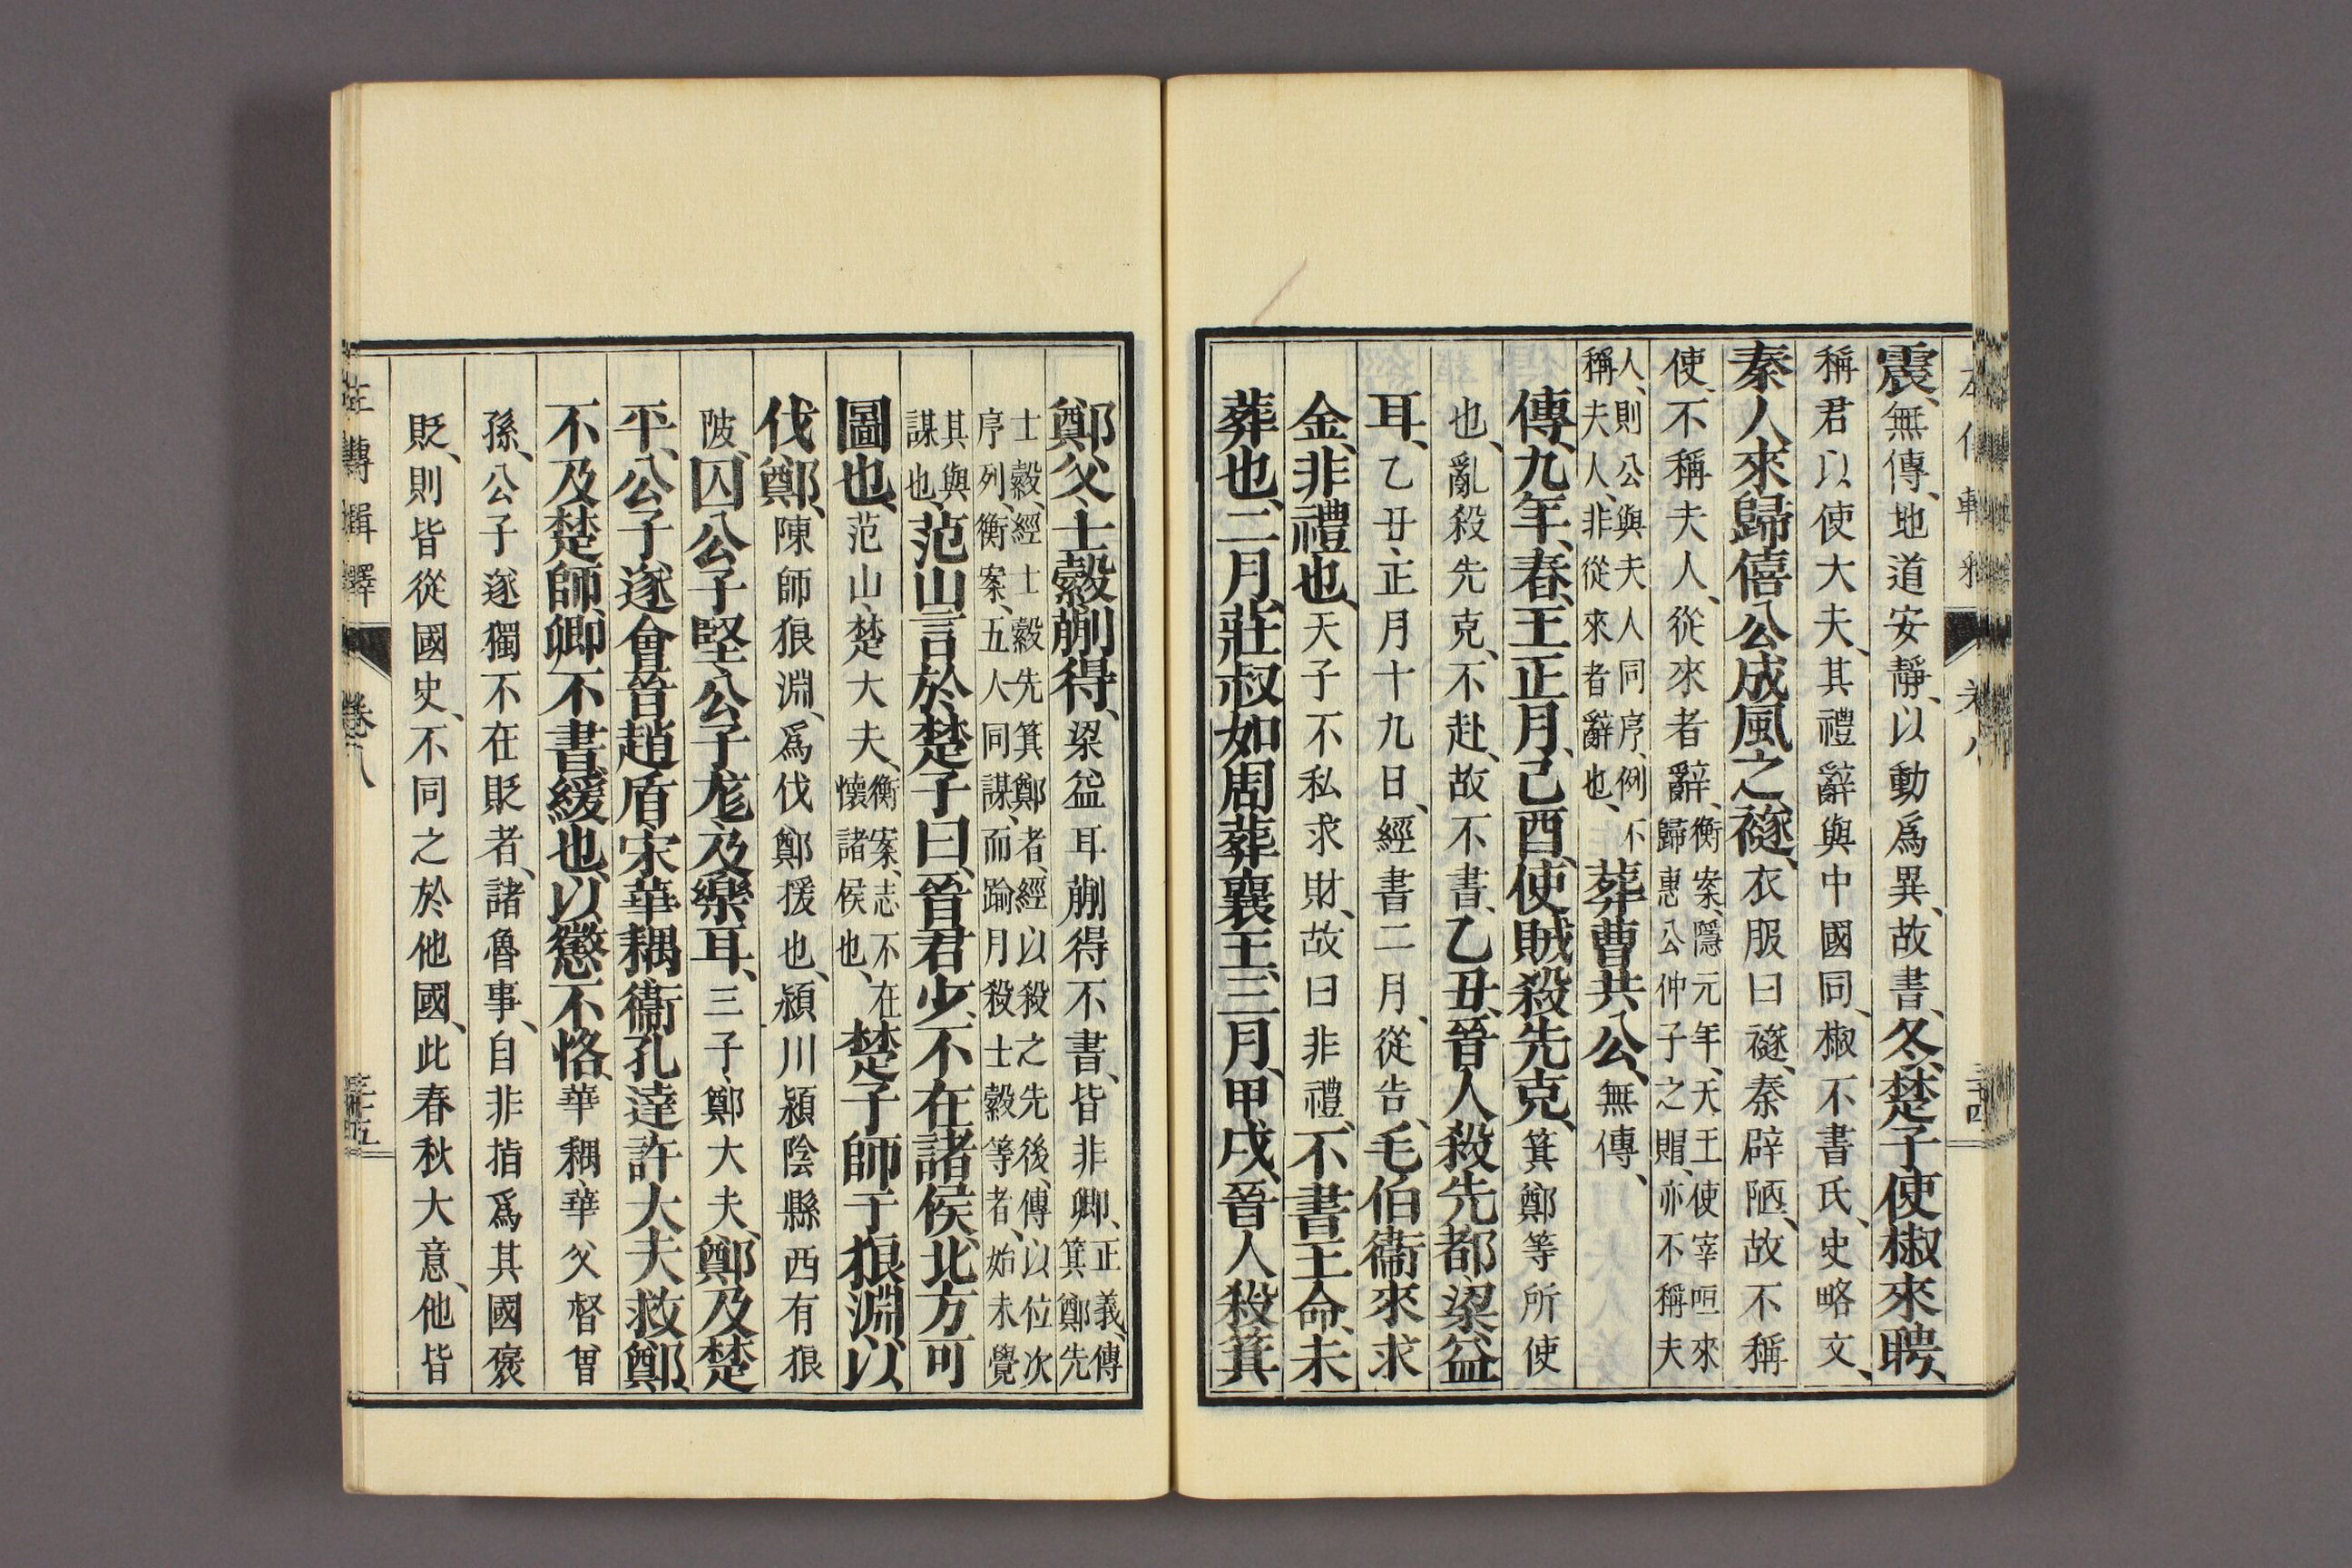 震、無傳、地道安靜、以動爲異、故書、冬、楚子使椒來聘、
稱君以使大夫、其禮辭與中國同、椒不書氏、史略文、
秦人來歸僖公成風之襚、衣服曰襚、秦辟陋、故不稱
使、不稱夫人、從來者辭、衡案、隱元年、天王使宰咺來
歸惠公仲子之賵、亦不稱夫
人、則公與夫人同序、例不
稱夫人、非從來者辭也、葬曹共公、無傳、
傳、九年、春、王正月、己酉、使賊殺先克、箕鄭等所使
也、亂殺先克、不赴、故不書、乙丑、晉人殺先都梁益
耳、乙丑、正月十九日、經書二月、從告、毛伯衞來求
金、非禮也、天子不私求財、故曰非禮、不書王命、未
葬也、二月、莊叔如周葬襄王、三月、甲戌、晉人殺箕
鄭父、士縠、蒯得、梁益耳蒯得不書、皆非卿、正義、傳
箕鄭先
士縠、經士縠先箕鄭者、經以殺之先後、傳以位次
序列、衡案、五人同謀、而踰月殺士縠等者、始未覺
其與
謀也、范山言於楚子曰、晉君少、不在諸侯、北方可
圖也、范山、楚大夫、衡案、志不在
懷諸侯也、楚子師于狼淵、以
伐鄭、陳師狼淵、爲伐鄭援也、潁川潁陰縣西有狼
陂、囚公子堅、公子尨、及樂耳、三子、鄭大夫、鄭及楚
平、公子遂會晉趙盾宋華耦、衞孔達許大夫救鄭、
不及楚師、卿不書、緩也、以懲不恪、華耦、華父督曾
孫、公子遂獨不在貶者、諸魯事、自非指爲其國褒
貶、則皆從國史、不同之於他國、此春秋大意、他皆
左傳輯釋 卷八 二十五